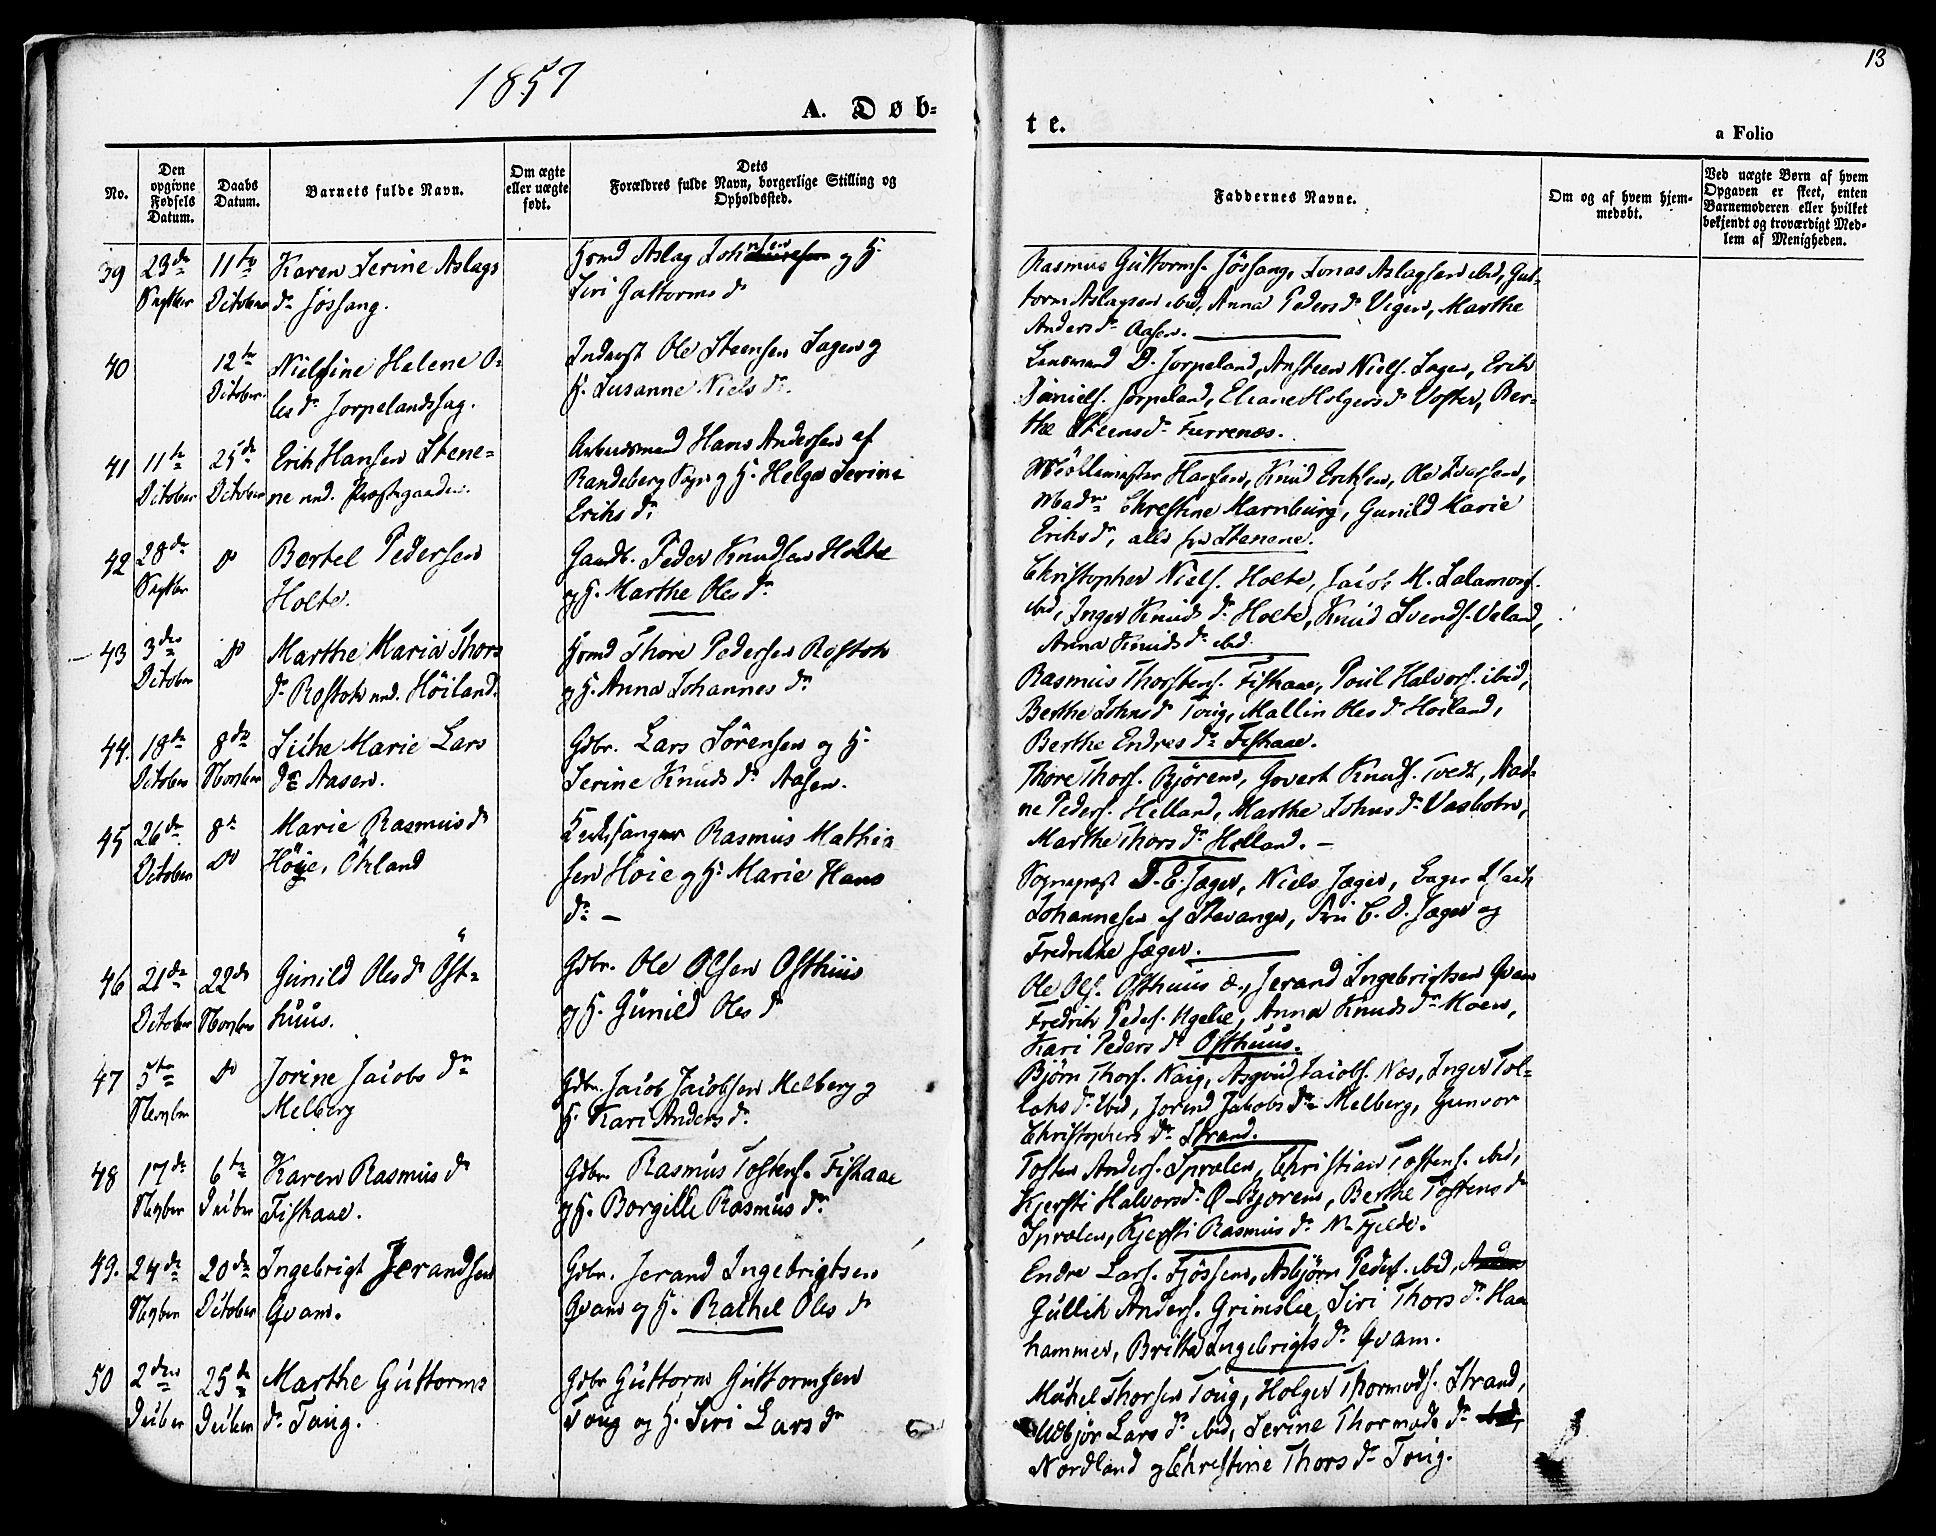 1857
13
A. Døb-
te.
a Folio
No.
Den opgivne Fødsels Datum.
Daabs Datum.
Barnets fulde Navn.
Om ægte eller uægte født.
Dets Forældres fulde Navn, borgerlige Stilling og Opholdssted.
Faddernes Navne.
Om og af hvem hjemmedøbt.
Ved uægte Børn af hvem Opgaven er skeet, enten Barnemoderen eller hvilket bekjendt og troværdigt Medlem af Menigheden.
39 23de 11te Karen Serine Aslags
Septbr October dr Jøssang.
Hmd Aslag Johnsen og H.
Siri Guttorms dr
Rasmus Guttorms. Jössang, Jonas Aslagsen ibid, Gut-
torm Aslagsen ibid, Anna Peders dr Vigen, Marthe
Anders dr Aasen.
40 12te Nielsine Helene O-
October les dr Jorpelandssag.
Inderst Ole Steensen Sagen og
H. Susanne Niels dr.
Lensmand D. Jorpeland, Ansteen Niels. Sagen, Erik
Daniels. Jorpeland, Eliane Holgers dr Voster, Ber-
the Steens dr Furrenæs.
41 11te 25de Erik Hansen Stene-
October October ne und. Præstegaarden.
Arbeidsmand Hans Andersen af
Randeberg Sogn og H. Helga Serine
Eriks dr
Möllemester Hansen, Knud Eriksen, Ole Iversen,
Madm Christine Marnburg, Gunild Marie
Eriks dr, alle fra Stenene.
42 28de do Bertel Pedersen
Septbr Holte.
Gaardb. Peder Knudsen Holte
og H. Marthe Oles dr
Christopher Niels. Holte, Jacob M. Salamons.
ibid, Inger Knuds dr Holte, Knud Svends. Veland,
Anna Knuds dr ibid.
43 3die do Marthe Maria Thors
October dr Rostok und. Höiland.
Hmd Thore Pedersen Rostok
og H. Anna Johannes dr
Rasmus Thorstens. Fiskaae, Poul Halvors. ibid,
Berthe Johns dr Toug, Mallin Oles dr Höiland,
Berthe Endres dr Fiskaae.
44. 18de 8de Sithe Marie Lars
October Novbr dr Aasen.
Gdbr. Lars Sörensen og H.
Serine Knuds dr Aasen.
Thore Thors. Björens, Govert Knuds. Tvedt, Aad-
ne Peders. Helland, Marthe Johns dr Vasbotn,
Marthe Thors dr Helland.
45 26de 8de Marie Rasmus dr
October do Höie, Ökland
Kirkesanger Rasmus Mathia
sen Höie og H. Marie Hans
dr
Sognepræst D. C. Jæger, Niels Jæger,
Johannesen af Stavanger, Fru C. D. Jæger og
Fredrikke Jæger.
46 21de 22de Gunild Oles dr Öst-
October Novbr huus.
Gdbr. Ole Olsen Östhuus
og H. Gunild Oles dr
Ole Ols. Osthuus æ., Jerand Ingebrigtsen Qvam
Fredrik Peders. Ugelie, Anna Knuds dr Moen,
Kari Peders dr Osthuus.
47 5te do Jorine Jacobs dr
Novbr Melberg
Gdbr. Jacob Jacobsen Melberg og
H. Kari Anders dr
Björn Thors. Naig, Asgrüd Jacobs. Næs, Inger Tol-
laks dr ibid, Jorend Jakobs dr Melberg, Gunvor
Christophers dr Strand.
48 17de 6te Karen Rasmus dr
Novbr Decbr Fiskaae.
Gdbr. Rasmus Tostens. Fiskaae
og H. Borgille Rasmus dr
Tosten Anders. Spralen, Christian Tostens. ibid,
Kjersti Halvors dr Ö-Björens, Berthe Tostens dr
Spralen, Kjersti Rasmus dr N-Fjelde.
49. 24de 20de Ingebrigt Jerandsen
Novbr October Qvam.
Gdbr. Jerand Ingebrigtsen
Qvam og H. Rachel Oles dr
Endre Lars. Fjössene, Asbjörn Peders. ibid,
Gullik Anders. Grimslie, Siri Thors dr Haa
hammer, Britha Ingebrigts dr Qvam.
50 2den 25de Marthe Guttorms
Decbr Decber dr Toug.
Gdbr Guttorm Guttormsen
Toug og H. Siri Lars dr
Mikel Thorsen Toug, Holger Thormods. Strand,
Udbjør Lars dr ibid, Serine Thormods dr ibid,
Nordland og Christine Thors dr Toug.